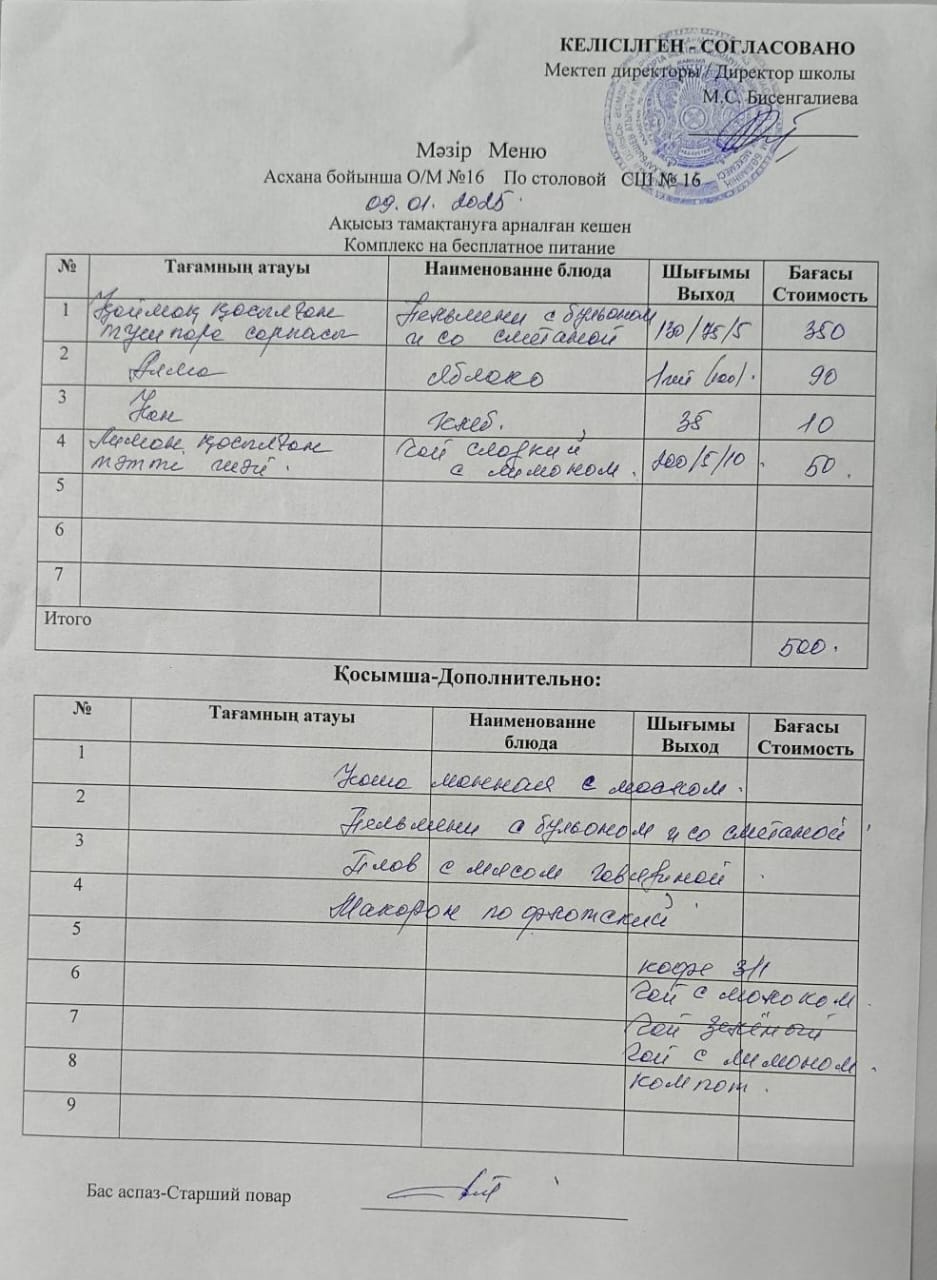 КЕЛІСІЛГЕН - СОГЛАСОВАНО
Мектеп директоры / Директор школы
М.С. Бисенгалиева
Мәзір Меню
Асхана бойынша О/М №16 По столовой СШ № 16
09.01.2025
Ақысыз тамақтануға арналған кешен
Комплекс на бесплатное питание
№ Тағамның атауы Наименованне блюда Шығымы Выход Бағасы Стоимость
1 Қаймақ қосылған тушпара сорпасы Пельмени с бульоном и со сметаной 130/75/5 350
2 Алма Яблоко 1шт (100). 90
3 Нан Хлеб. 35 10
4 Лимон қосылған тәтті шәй. Чай сладкий с лимоном. 200/5/10. 50.
5
6
7
Итого 500.
Қосымша-Дополнительно:
№ Тағамның атауы Наименованне блюда Шығымы Выход Бағасы Стоимость
1 Каша манная с молоком.
2 Пельмени с бульоном и со сметаной
3 Плов с мясом говядиной
4 Макарон по флотский
5 кофе 3/1
6 Чай с молоком.
7 Чай зелёный
Чай с лимоном.
8 компот.
9
Бас аспаз-Старший повар